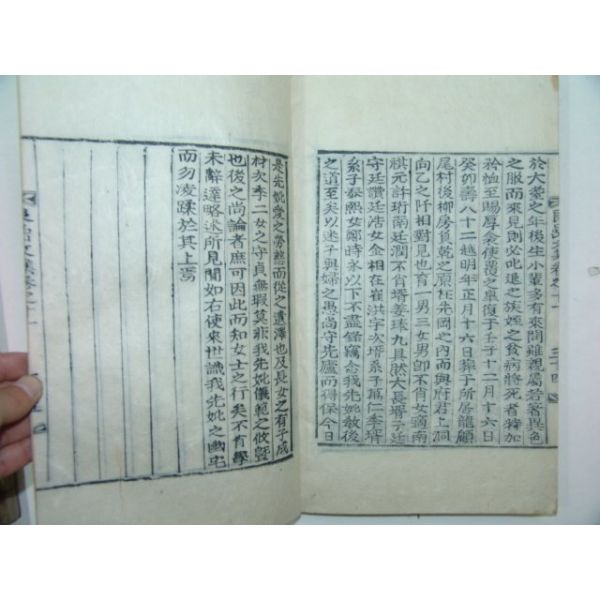 於大蒙之年後生小輩多有來問雖親屬若著異色
之服而來見則必此退之族姻之食病將死者特加
矜恤至賜厚衾使覆之卑復于壬子十二月十六日
癸卯壽八十二越明年正月十六日葬于所居龍顧
尾村後柳房負乾之原在先岡之內而與府君上洞
向乙之阡相對見也育一男三女男卽不肖女適南
祺元許珩南廷潤不肖壻姜璂九具然大長壻子廷
守廷讚廷浩女金相在崔洪字次壻系子萬仁季壻
系子泰熙女鄭時永以下不盡錄竊念我先妣敎後
之道至矣以迷子與婦之愚尚守先廬而得保今日
是先妣愛之勞慈而從之遺澤也及長女之有子成
材次季二女之守貞無瑕莫非我先妣儀範之攸曁
也後之尚論者庶可因此而知女士之行矣不肖學
未辭達略述所見聞如右使來世識我先妣之幽宅
而勿凌蹂於其上焉